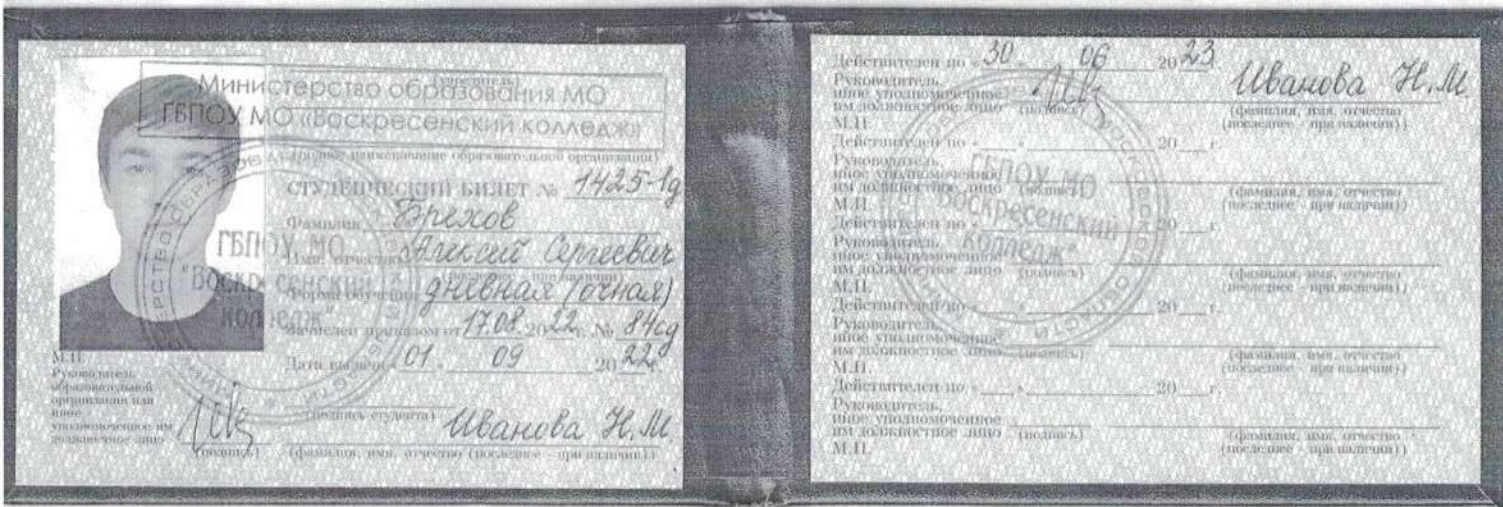 (учредитель)
Министерство образования МО
ГБПОУ МО «Воскресенский колледж»
(полное наименование образовательной организации)
СТУДЕНЧЕСКИЙ БИЛЕТ № 1425-1д
Фамилия Брехов
Имя, отчество Алексей Сергеевич
(последнее - при наличии)
Форма обучения дневная (очная)
Зачислен приказом от 17.08. 2022 г. № 84сд
Дата выдачи « 01 » 09 2022
(подпись студента)
М.П.
Руководитель
образовательной
организации или
иное
уполномоченное им
должностное лицо
(подпись)
Иванова Н.М
(фамилия, имя, отчество (последнее - при наличии))
ГБПОУ МО
"Воскресенский
колледж"
Действителен по « 30 » 06 2023
Руководитель,
иное уполномоченное
им должностное лицо (подпись)
Иванова Н.М.
(фамилия, имя, отчество
М.П. (последнее - при наличии))
Действителен по « » 20 г.
Руководитель,
иное уполномоченное
им должностное лицо (подпись) (фамилия, имя, отчество
М.П. (последнее - при наличии))
Действителен по « » 20 г.
Руководитель,
иное уполномоченное
им должностное лицо (подпись) (фамилия, имя, отчество
М.П. (последнее - при наличии))
Действителен по « » 20 г.
Руководитель,
иное уполномоченное
им должностное лицо (подпись) (фамилия, имя, отчество
М.П. (последнее - при наличии))
Действителен по « » 20 г.
Руководитель,
иное уполномоченное
им должностное лицо (подпись) (фамилия, имя, отчество
М.П. (последнее - при наличии))
ГБПОУ МО
"Воскресенский
колледж"